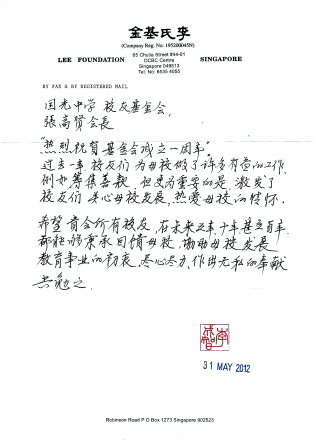 金基氏李
(Company Reg. No: 195200045N)
LEE FOUNDATION
65 Chulia Street #44-01
OCBC Centre
Singapore 049513
Tel. No: 6535 4055
SINGAPORE
BY FAX & BY REGISTERED MAIL
国光中学 校友基金会,
張高賢会長
"热烈祝贺基金会成立一周年"
过去一年校友们为母校做了许多有益的工作
例如筹集善款, 但更为重要的是, 激发了
校友们关心母校发展, 热爱母校的情怀.
希望贵会所有校友, 在未来五年, 十年甚至百年
都能够秉承回馈母校, 协助母校发展
教育事业的初衷, 尽心尽力, 作出无私的奉献
共勉之.
31 MAY 2012
Robinson Road P O Box 1273 Singapore 902523